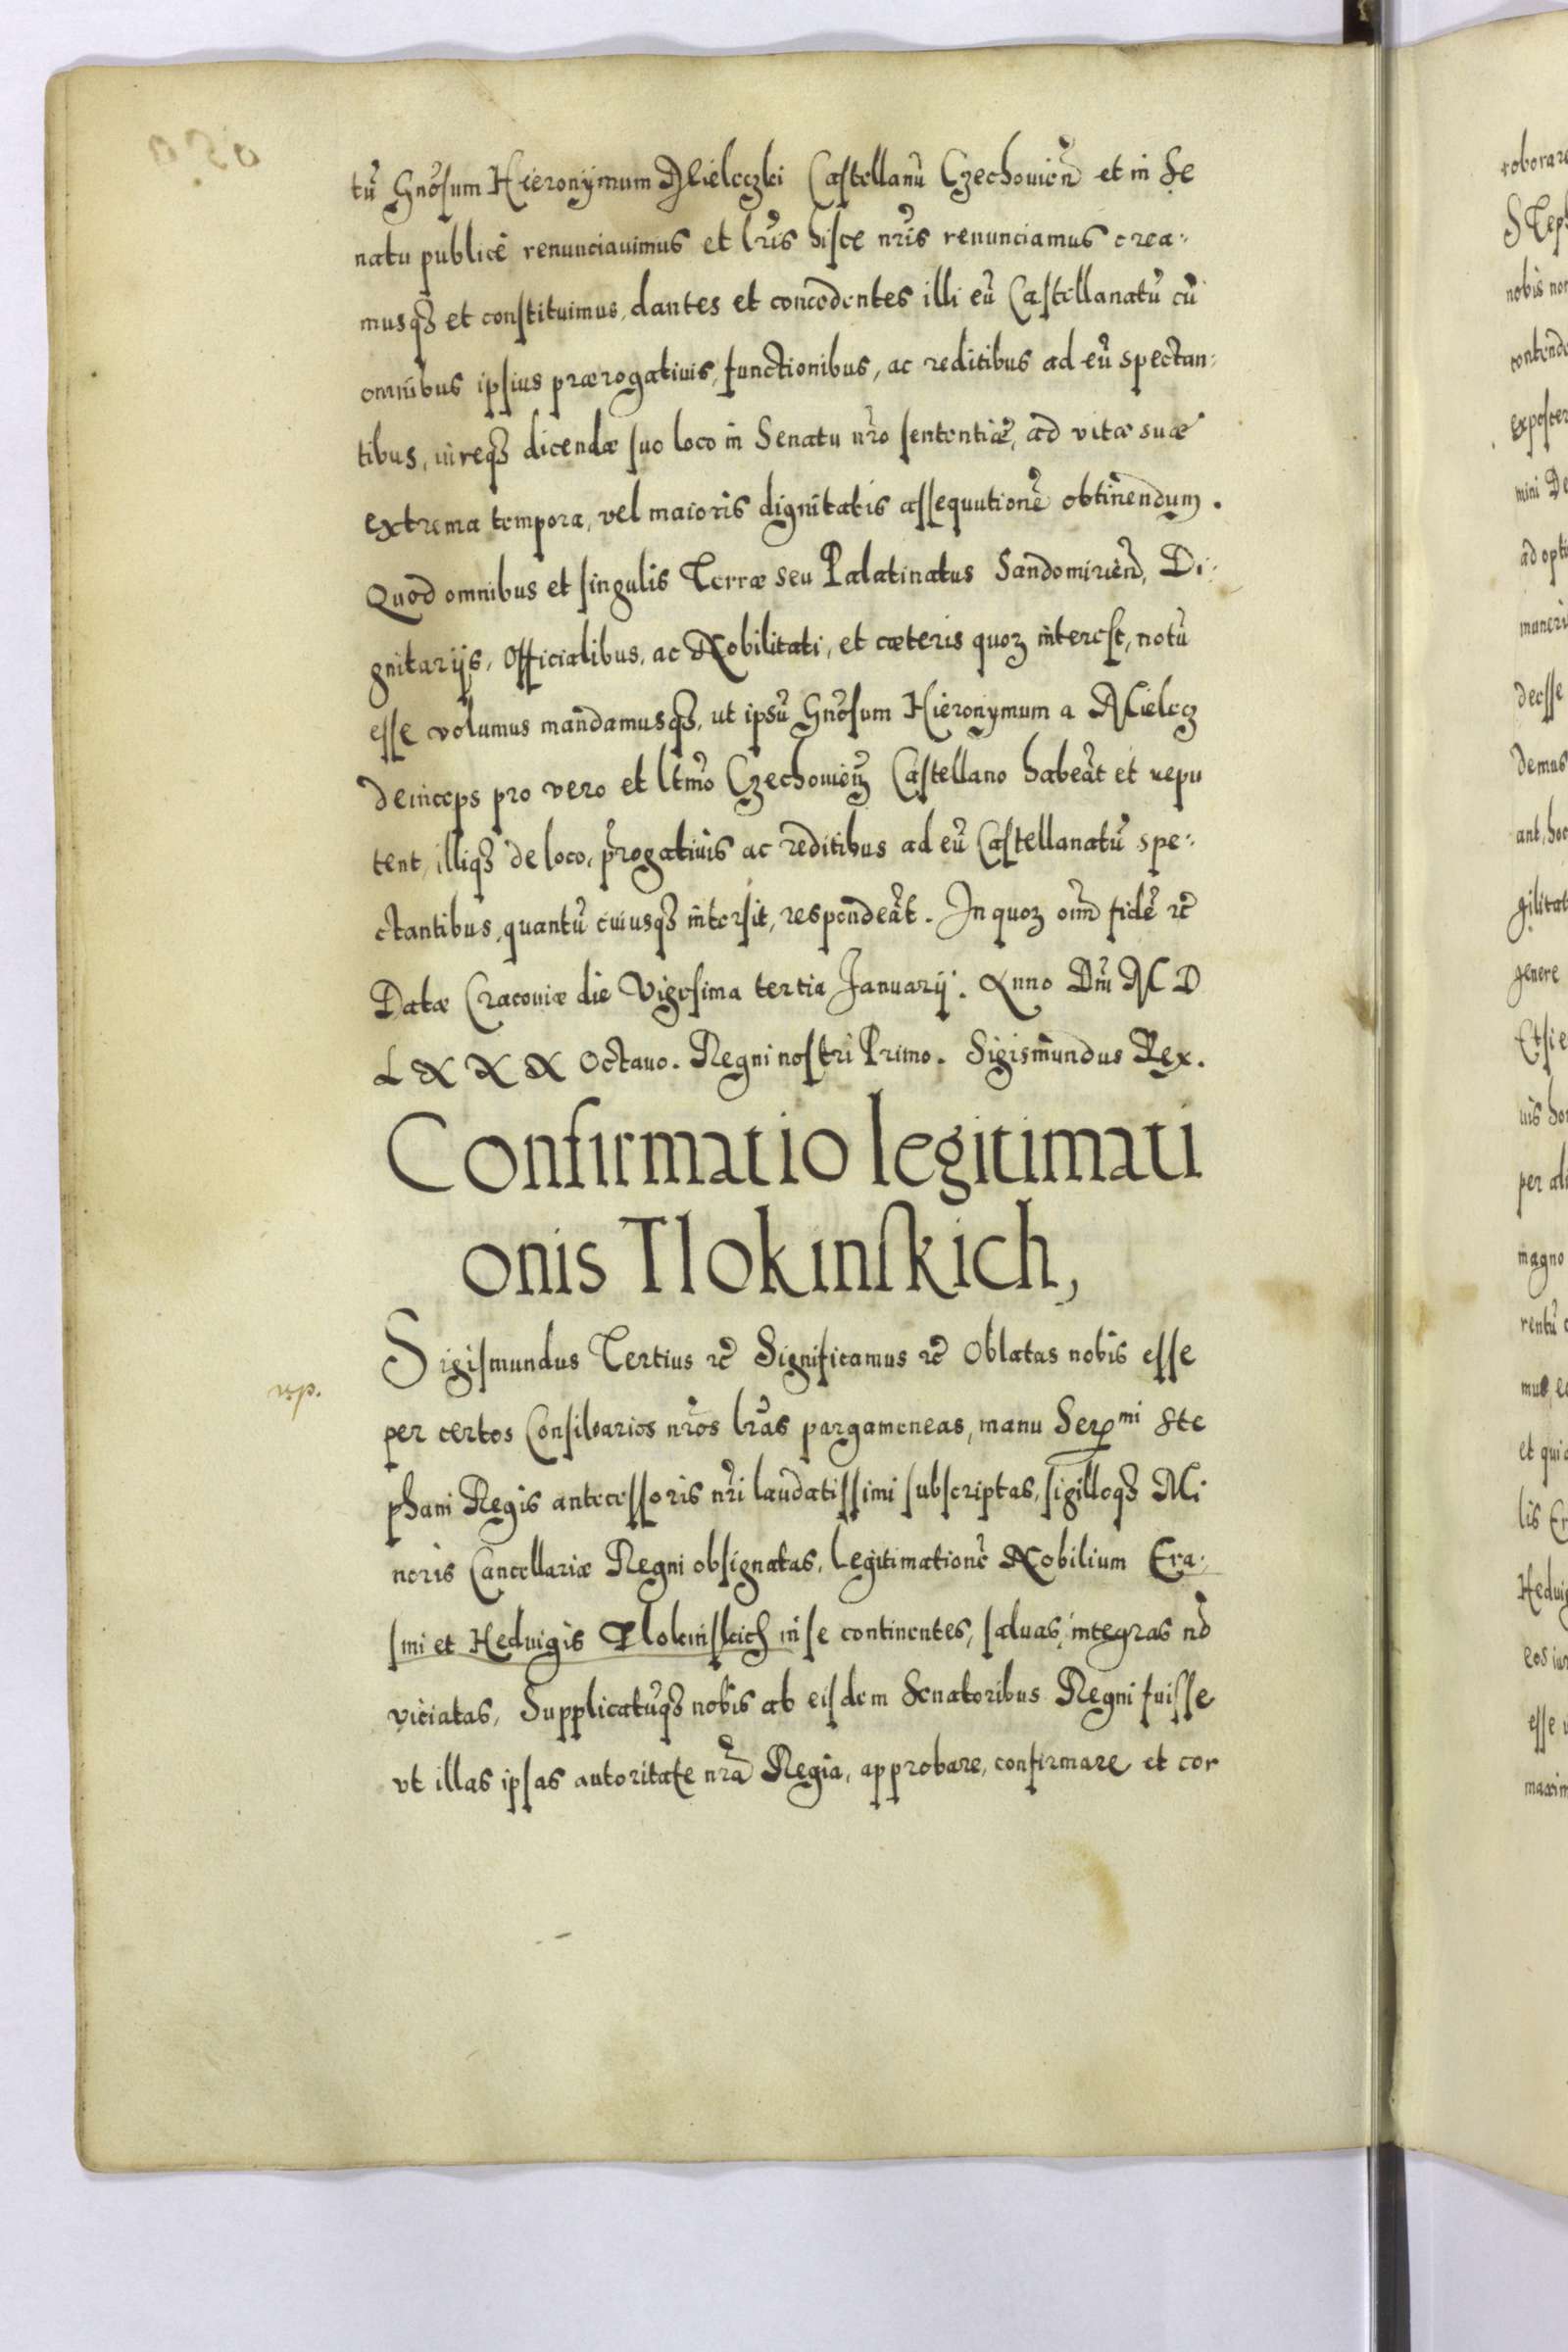 tū Gnōsum Hieronymum Mieleczki Castellanū Czechouien̄ et in Se
natu publicè renunciauimus et lr̄is hisce nr̄is renunciamus crea-
musqȝ et constituimus, dantes et concedentes illi eū Castellanatū cū
omnibus ipsius prærogatiuis, functionibus, ac reditibus ad eū spectan-
tibus, iureqȝ dicendæ suo loco in Senatu nr̄o sententiæ, ad vitæ suæ
extrema tempora, vel maioris dignitatis assequutionē obtinendum.
Quod omnibus et singulis Terræ seu Palatinatus Sandomirien̄, Di-
gnitarijs, Officialibus, ac Nobilitati, et cæteris quoȝ interest, notū
esse volumus mandamusqȝ, ut ipsū Gnōsum Hieronymum a Mielecz
deinceps pro vero et ltm̄o Czechouien̄ Castellano habeāt et repu
tent, illiqȝ de loco, p̄rogatiuis ac reditibus ad eū Castellanatū spe-
ctantibus, quantū cuiusqȝ intersit, respondeāt. In quoȝ om̄ fidē ꝛc̄
Datæ Cracouiæ die Vigesima tertia Januarij. Anno Dn̄i M D
L X X X Octauo. Regni nostri Primo. Sigismundus Rex.
Confirmatio legitimati
onis Tlokinſkich,
Sigismundus Tertius ꝛc̄ Significamus ꝛc̄ Oblatas nobis esse
per certos Consiliarios nr̄os lr̄as pargameneas, manu Serᵐⁱ Ste
phani Regis antecessoris nr̄i laudatissimi subscriptas, sigilloqȝ Mi
noris Cancellariæ Regni obsignatas, Legitimationē Nobilium Era-
smi et Heduigis Tlokinskich in se continentes, saluas, integras nō
viciatas, Supplicatūqȝ nobis ab eisdem Senatoribus Regni fuisse
vt illas ipsas autoritate nr̄a Regia, approbare, confirmare et cor